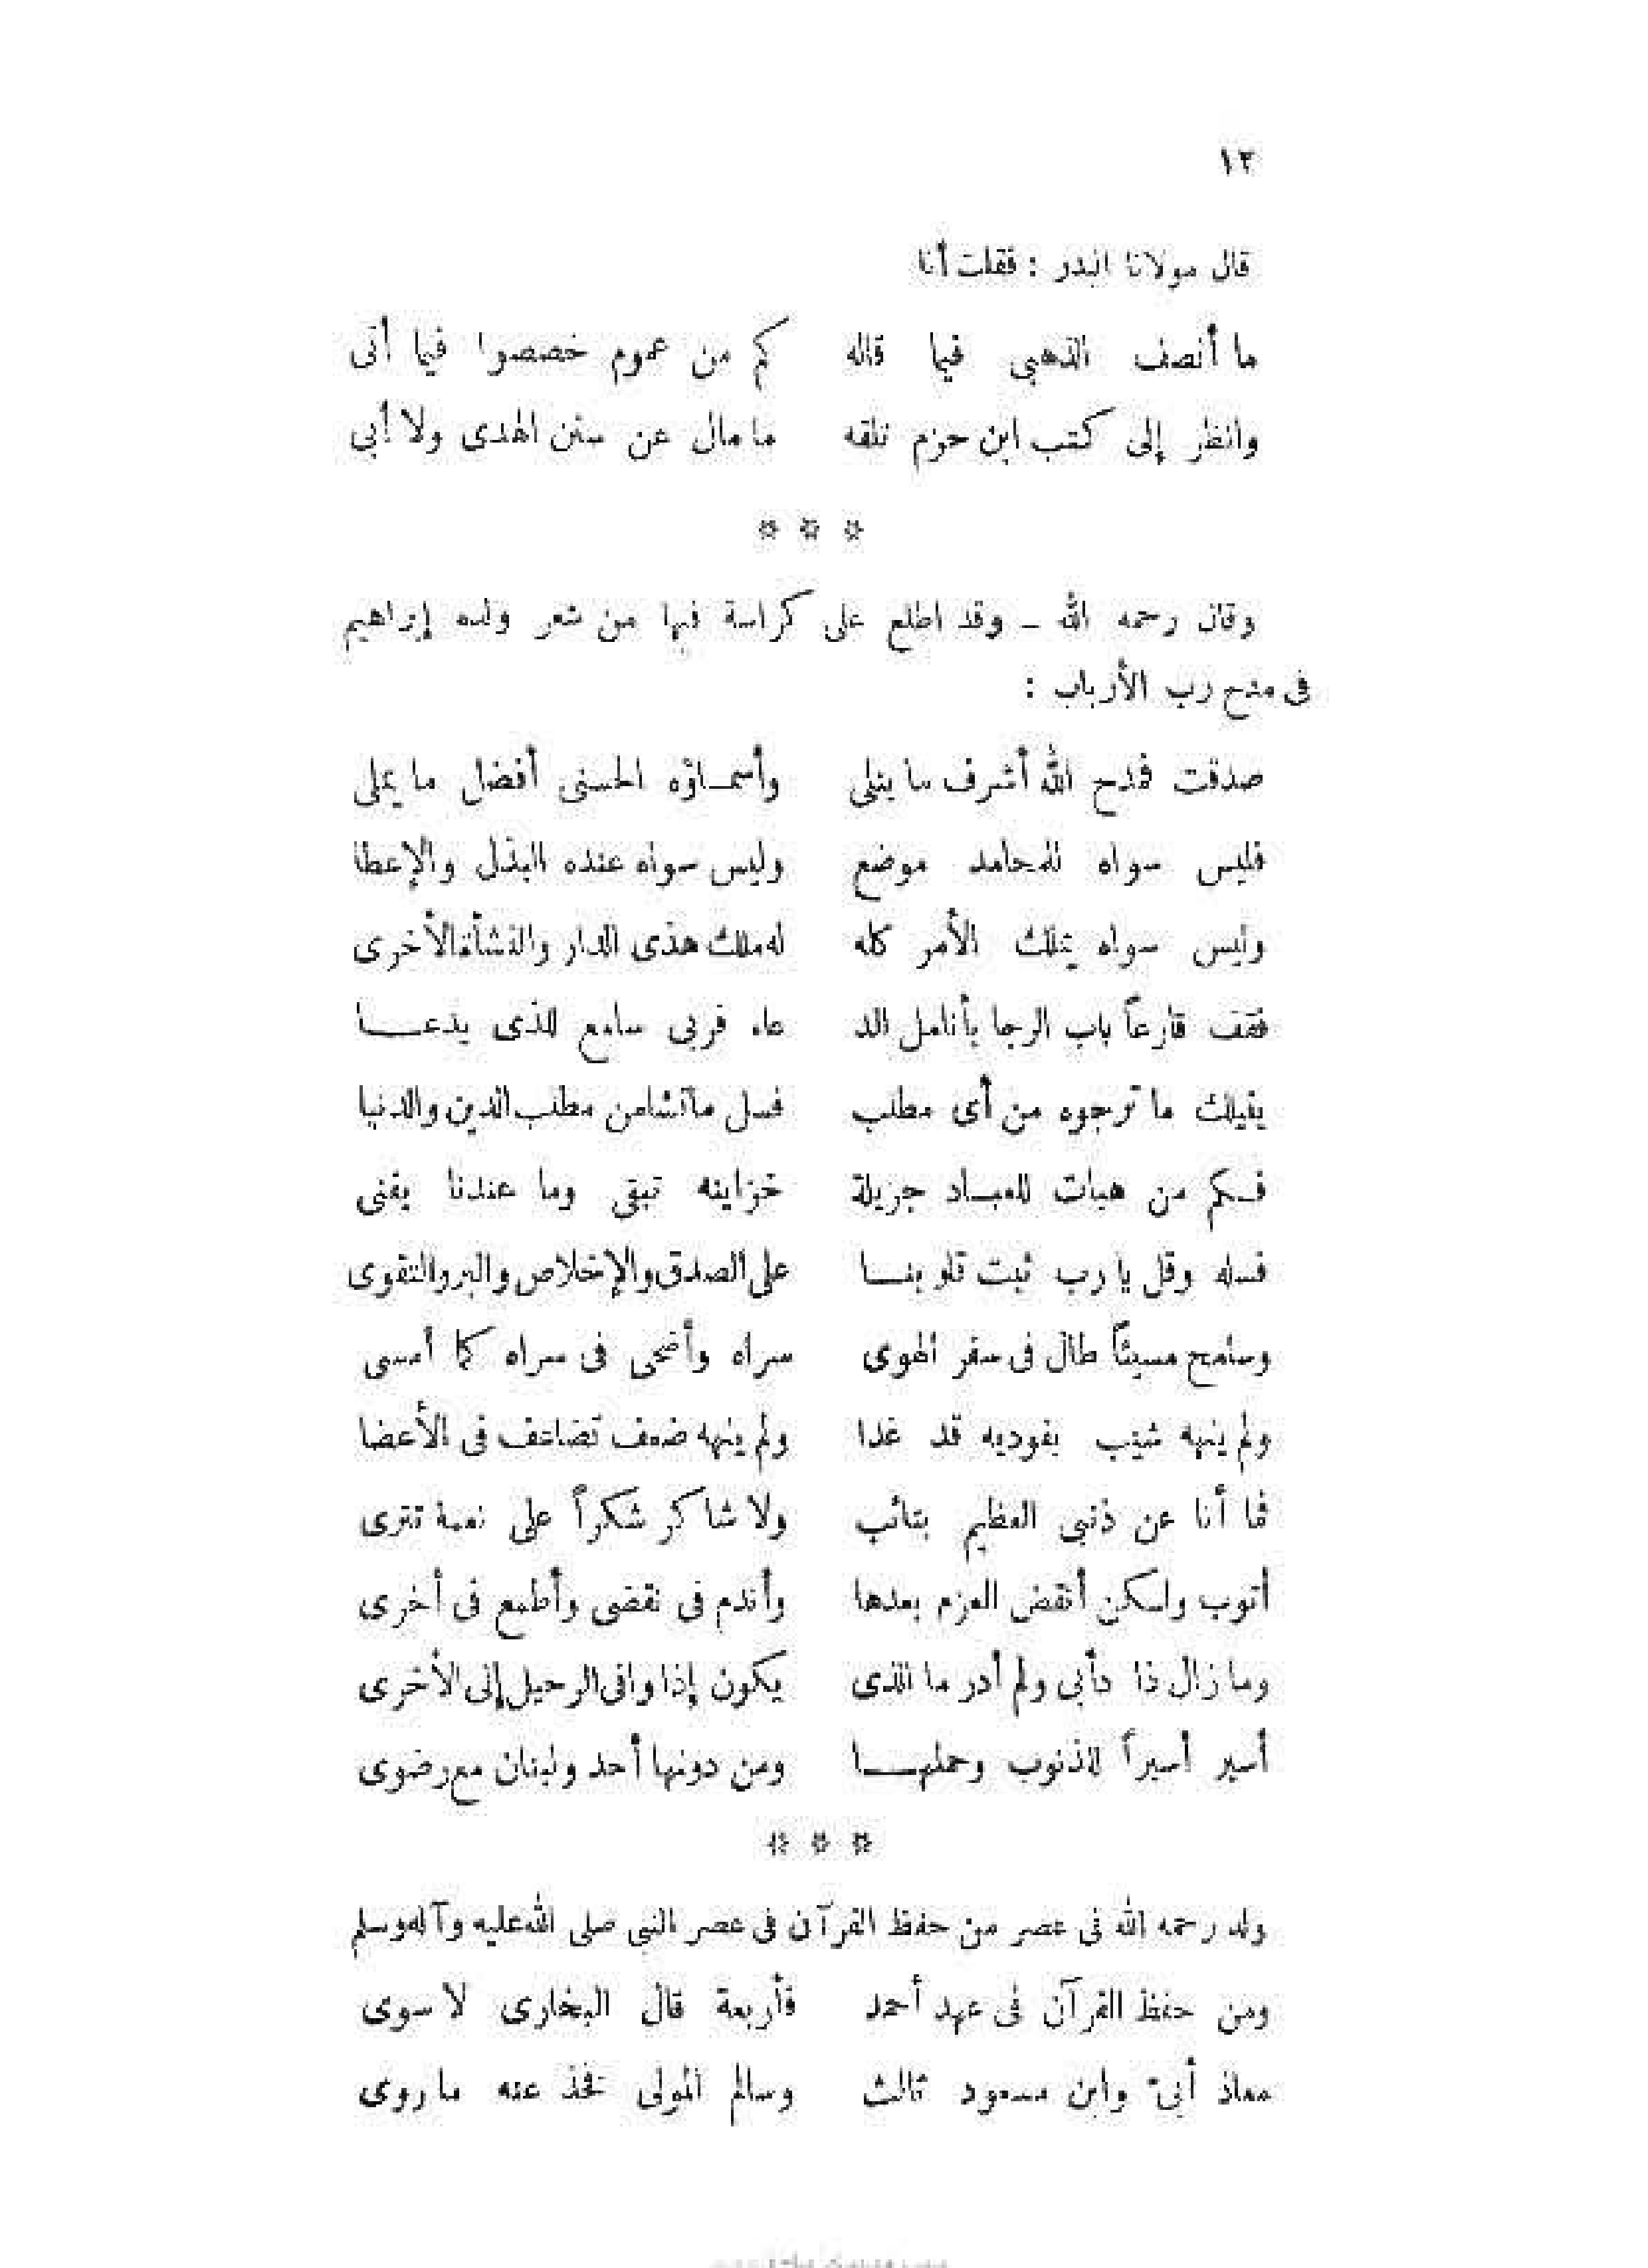 ١٢
قال مولانا البدر : فقلت أنا
ما أنصف الذهبى فيما قاله كم من عموم خصصوا فيما أتى
وانظر إلى كتب ابن حزم تلقه ما مال عن سنن الهدى ولا أبى
* * *
وقال رحمه الله ـ وقد اطلع على كراسة فيها من شعر ولده إبراهيم
فى مدح رب الأرباب :
صدقت فمدح الله أشرف ما يتلى وأسمـاؤه الحسنى أفضل ما يملى
فليس سواه للمحامد موضع وليس سواه عنده البذل والإعطا
وليس سواه يملك الأمر كله له ملك هذى الدار والنشأة الأخرى
فقف قارعاً باب الرجا بأنامل الد عاء فربى سامع للذى يدعـــا
ينيلك ما ترجوه من أى مطلب فسل ما تشا من مطلب الدين والدنيا
فـكم من هبات للعبـاد جزيلة خزاينه تبقى وما عندنا يفنى
فسله وقل يا رب ثبت قلوبنـــا على الصدق والإخلاص والبر والتقوى
وسامح مسيئاً طال فى سفر الهوى سراه وأضحى فى سراه كما أمسى
ولم ينهه شيب بفوديه قد غدا ولم ينهه ضعف تضاعف فى الأعضا
فما أنا عن ذنبى العظيم بتائب ولا شاكر شكراً على نعمة تترى
أتوب ولـكن أنقض العزم بعدها وأندم فى نقضى وأطمع فى أخرى
وما زال ذا دأبى ولم أدر ما الذى يكون إذا وافى الرحيل إلى الأخرى
أسير أسيراً للذنوب وحملهـــا ومن دونها أحد ولبنان مع رضوى
* * *
وله رحمه الله فى عصر من حفظ القرآن فى عصر النبى صلى الله عليه وآله وسلم
ومن حفظ القرآن فى عهد أحمد فأربعة قال البخارى لا سوى
معاذ أبىّ وابن مسعود ثالث وسالم المولى فخذ عنه ما روى